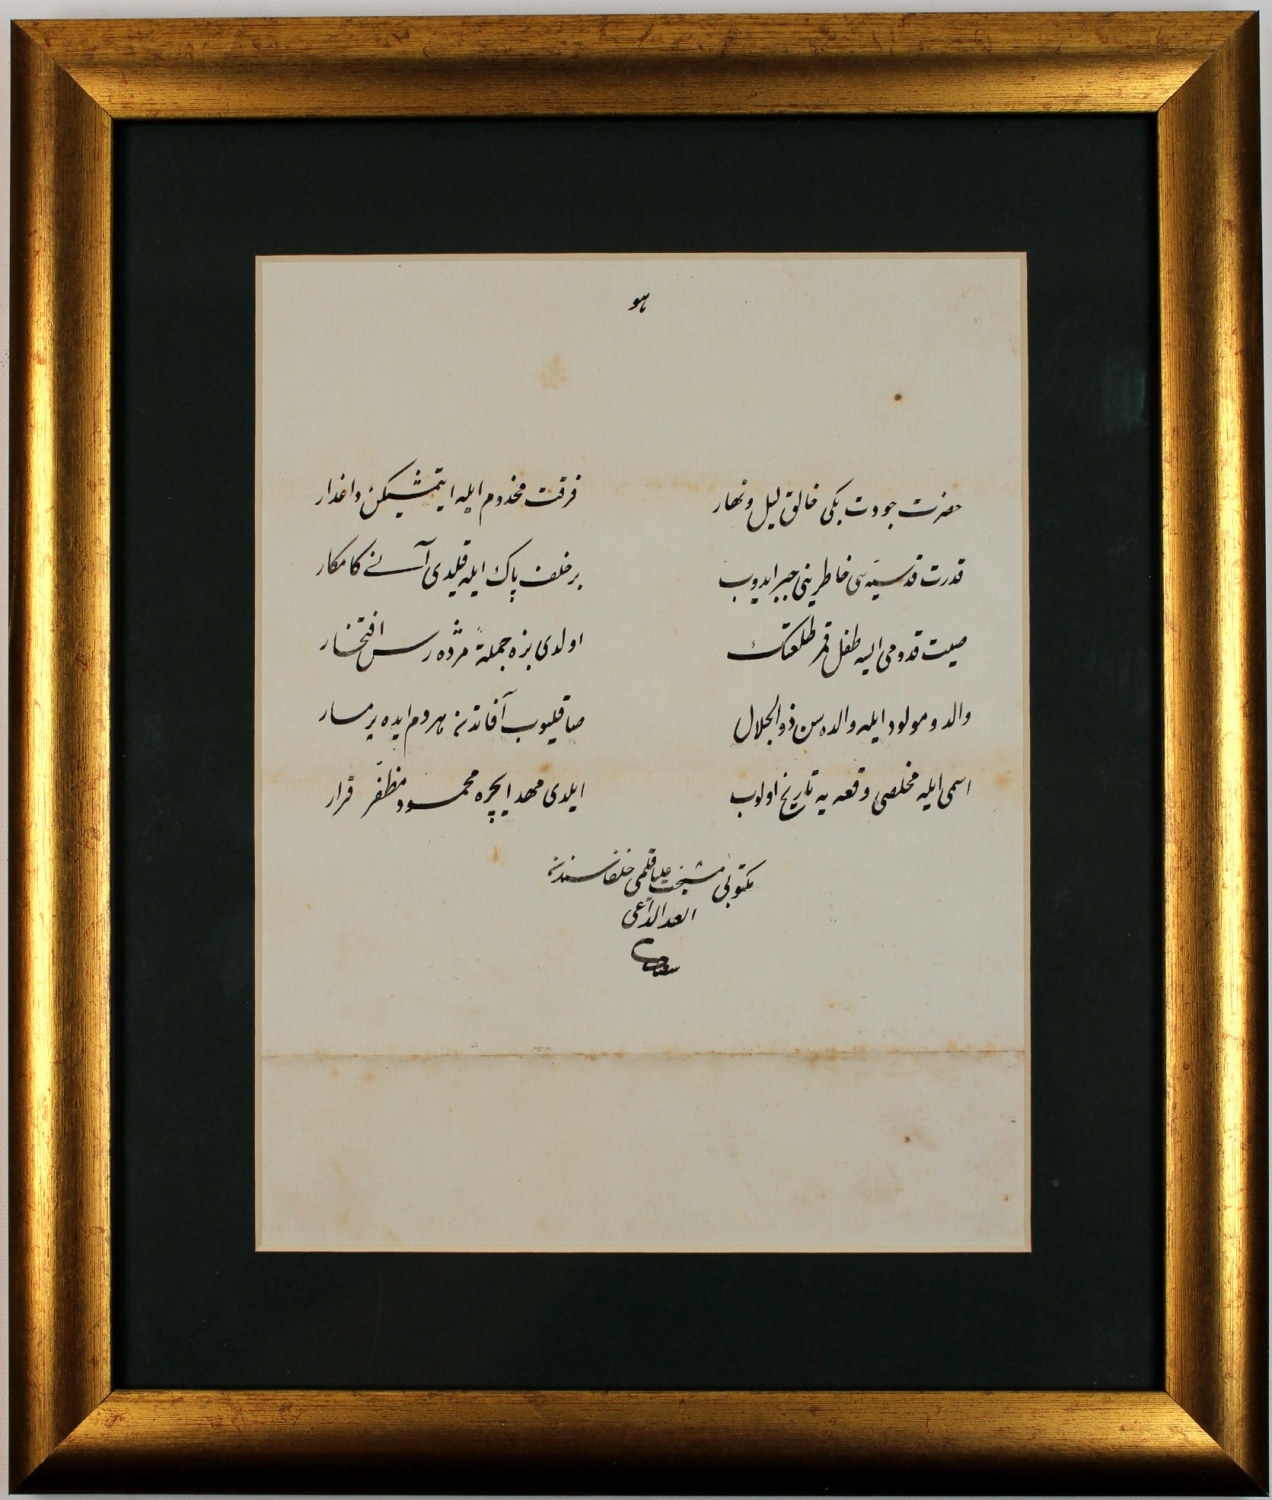 هو
حضرت جودت بكی خالق لیل و نهار فرقت مخدوم ایله ایتمشیكن داغدار
قدرت قدسیه سی خاطرینی جبر ایدوب بر خلف پاك ایله قیلدی آنی كامكار
صیت قدومی ایسه طفل قمر طلعتك اولدی بزه جملةً مژده رس افتخار
والد و مولود ایله والده سن ذوالجلال صاقلیوب آفاتدن هر دم ایده برمسار
اسمی ایله مخلصی وقعه یه تاریخ اولوب ایلدی مهد ایچره محمود مظفّر قرار
مكتوبی مشیخت علیا قلمی خلفاسندن
العبد الداعی